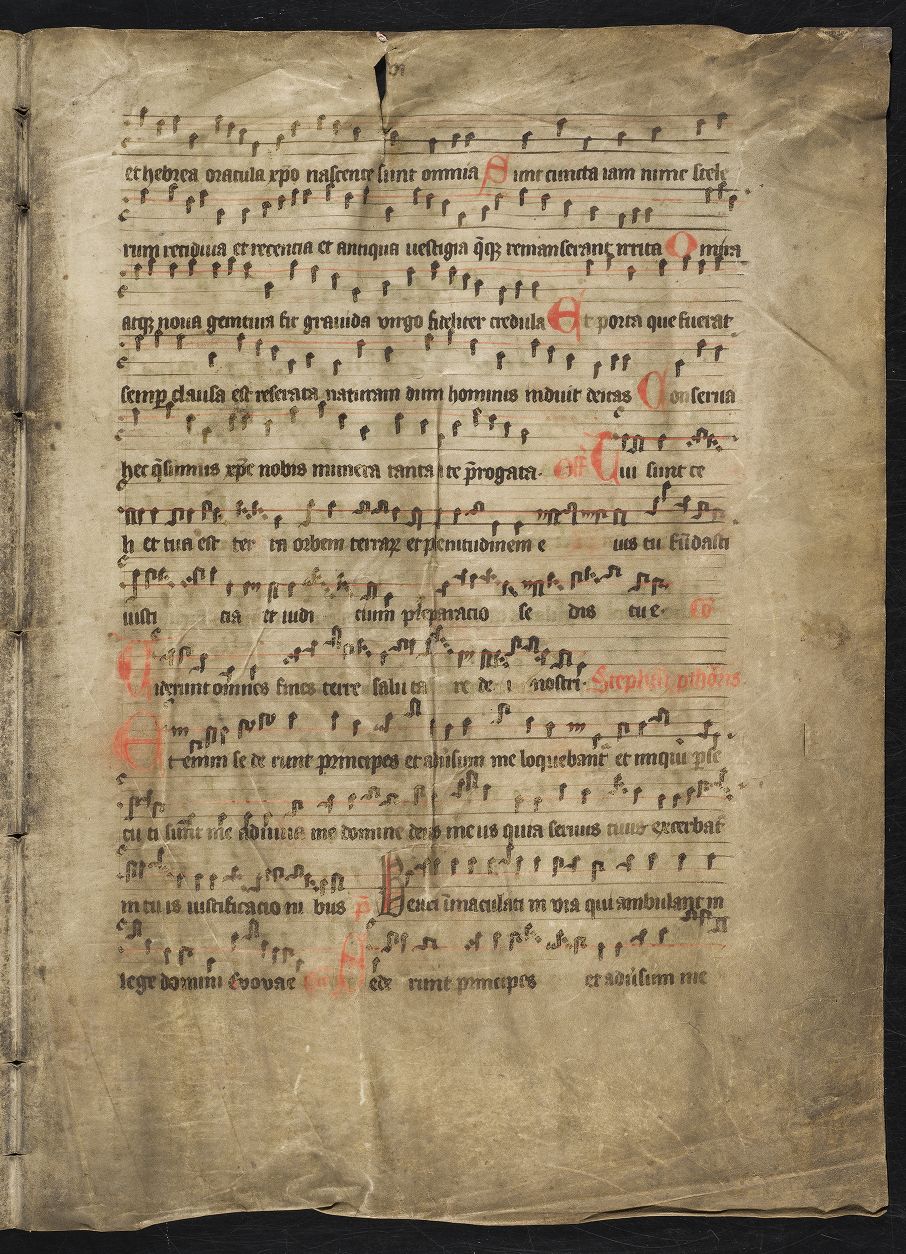 et hebrea oracula xpo nascente sunt omnia Sunt cuncta iam nunc scele
rum recidiua et recencia et antiqua uestigia q̄qꝫ remanserant irrita O mira
atqꝫ noua genitura fit grauida virgo fideliter credula Et porta que fuerat
semp clausa est reserata naturam dum hominis induit deitas Conserua
hec q̄sumus xpe nobis munera tanta te p̄rogata. Off Tui sunt ce
li et tua est ter ra orbem terraꝝ et plenitudinem e ius tu fūdasti
iusti cia et iudi cium preparacio se dis tu e. Cō
Uiderunt omnes fines terre salu ta re de i nostri. Stephani pthom̄ris
Et enim se de runt principes et adūsum me loquebant et iniqui p̄se
cu ti sunt me adiuua me domine deus me us quia seruus tuus excerbat
in tu is iustificacio ni bus p̄ Beati īmaculati in via qui ambulant in
lege domini Evovae Sede runt principes et adūsum me